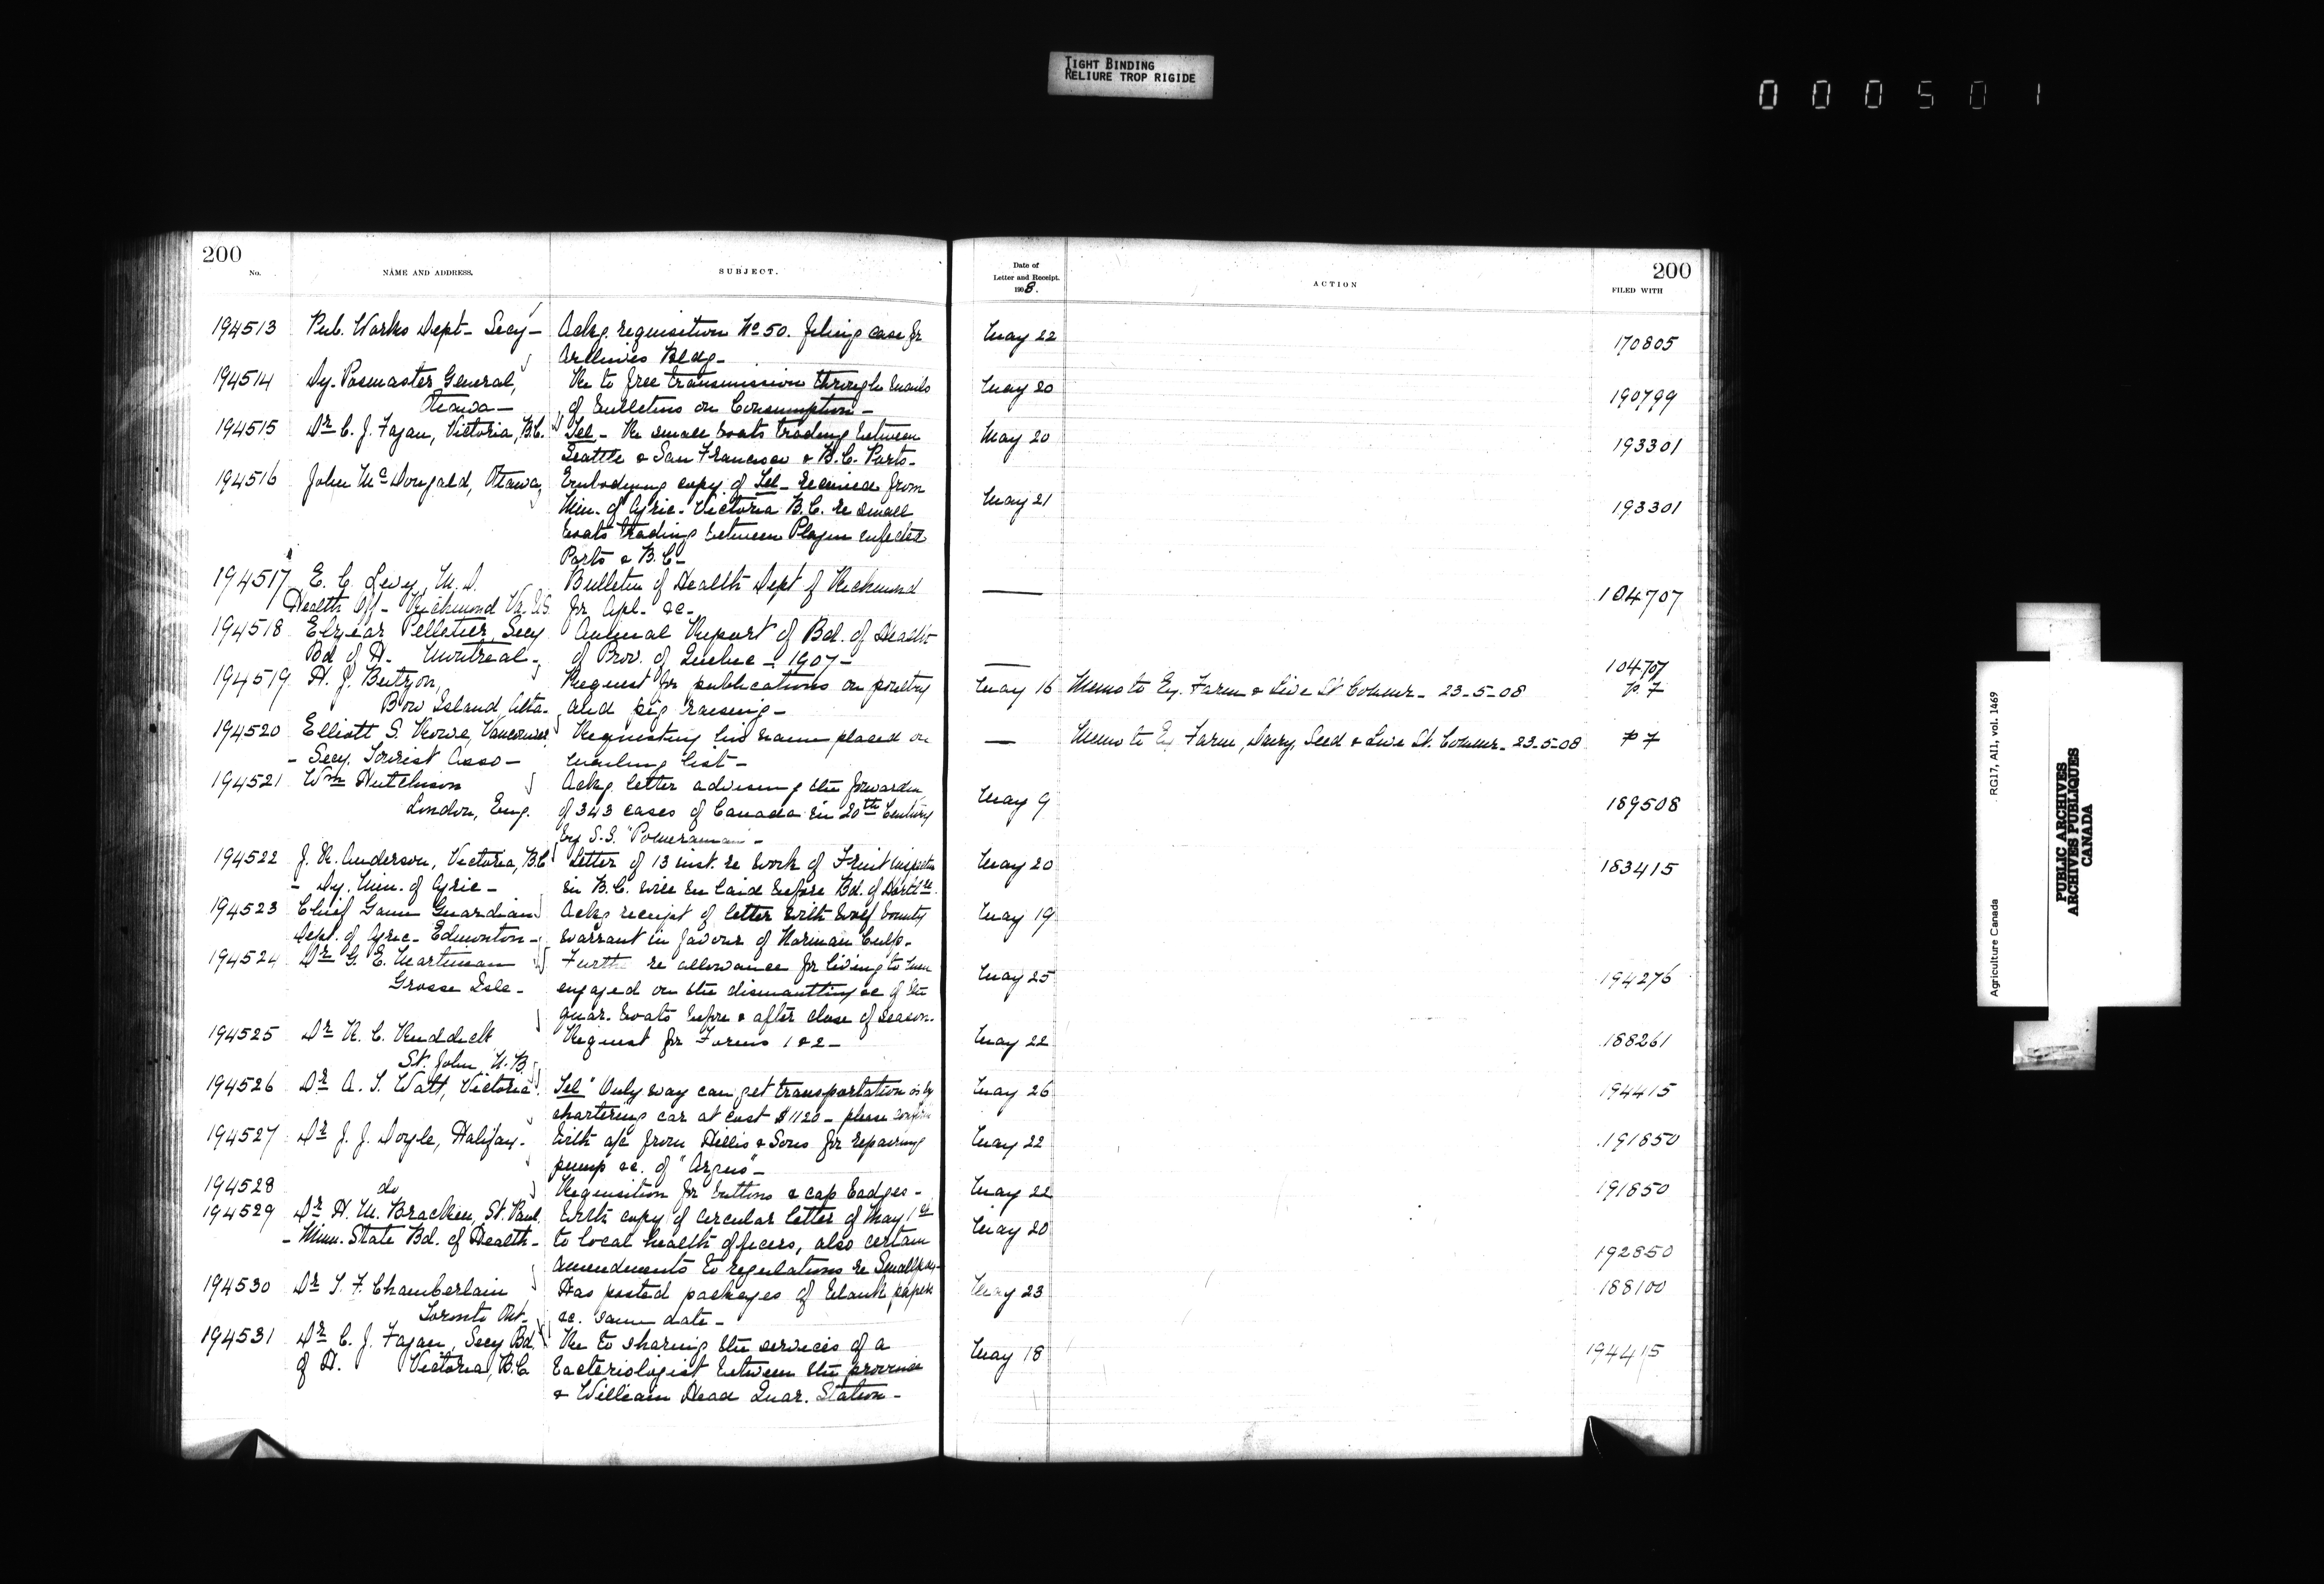 TIGHT BINDING
RELIURE TROP RIGIDE
000501
200
No.
NAME AND ADDRESS.
SUBJECT.
194513 Pub. Works Dept - Secy - Ackg. requisition No 50. filing case for
Archives Bldg -
194514 Dy. Posmaster General, Re to free transmission through mails
Ottawa - of bulletins on Consumption -
194515 Dr C. J. Fagan, Victoria, B.C. Tel - Re small boats trading between
Seattle & San Francisco & B.C. Ports -
194516 John McDougald, Ottawa, Embodying copy of Tel - received from
Min. of Agric - Victoria B.C. re small
boats trading between Plague infected
Ports & B.C -
194517 E. C. Levy, M.D. Bulletin of Health Dept of Richmond
Health Off - Richmond Va. U.S. for Apl. &c -
194518 Elzear Pelletier, Secy Annual Report of Bd. of Health
Bd of H - Montreal - of Prov. of Quebec - 1907 -
194519 H. J. Request for publications on poultry
Bow Island Alta - and pig raising -
194520 Elliott S. Rowe, Vancouver Requesting his name placed on
- Secy. Tourist Asso - mailing list -
194521 Wm Hutchison Ackg. letter advising the forwarding
London, Eng. of 343 cases of Canada in 20th Century
by S.S. "Pomeranian" -
194522 J. R. Anderson, Victoria, B.C Letter of 13 inst. re work of Fruit
- Dy. Min. of Agric - in B.C. will be laid before Bd. of
194523 Chief Game Guardian Ackg receipt of letter with wolf bounty
Dept. of Agric - Edmonton - warrant in favour of Norman Culp -
194524 Dr G. E. Martineau Furth re allowance for living to men
Grosse Isle - engaged on the dismantling &c of the
quar. boats before & after close of season -
194525 Dr R. C. Ruddick Request for Forms 1 & 2 -
St. John N.B.
194526 Dr A. T. Watt, Victoria Tel "Only way can get transportation is by
chartering car at cost $1120 - please confirm
194527 Dr J. J. Doyle, Halifax - With a/c from Hillis & Sons for repairing
pump &c. of "Argus" -
194528 do Requisition for buttons & cap badges -
194529 Dr H. M. Bracken, St. Paul With copy of circular letter of May 1st
- Minn. State Bd. of Health - to local health officers, also certain
amendments to regulations re Smallpox -
194530 Dr T. F. Chamberlain Has posted packages of blank paper
Toronto Ont - &c. same date -
194531 Dr C. J. Fagan, Secy Bd. Re to sharing the services of a
of H. Victoria, B.C bacteriologist between the province
& William Head Quar. Station -
Date of
Letter and Receipt.
1908.
ACTION
200
FILED WITH
May 22 170805
May 20 190799
May 20 193301
May 21 193301
— 104707
— 104707
May 16 Memo to Ex. Farm & Live St Commr - 23-5-08 P. 7
— Memo to Ex Farm, Dairy, Seed & Live St. Commr - 23-5-08 P 7
May 9 189508
May 20 183415
May 19
May 25 194276
May 22 188261
May 26 194415
May 22 191850
May 22 191850
May 20 192850
May 23 188100
May 18 194415
Agriculture Canada
RG17, AI1, vol. 1469
PUBLIC ARCHIVES
ARCHIVES PUBLIQUES
CANADA